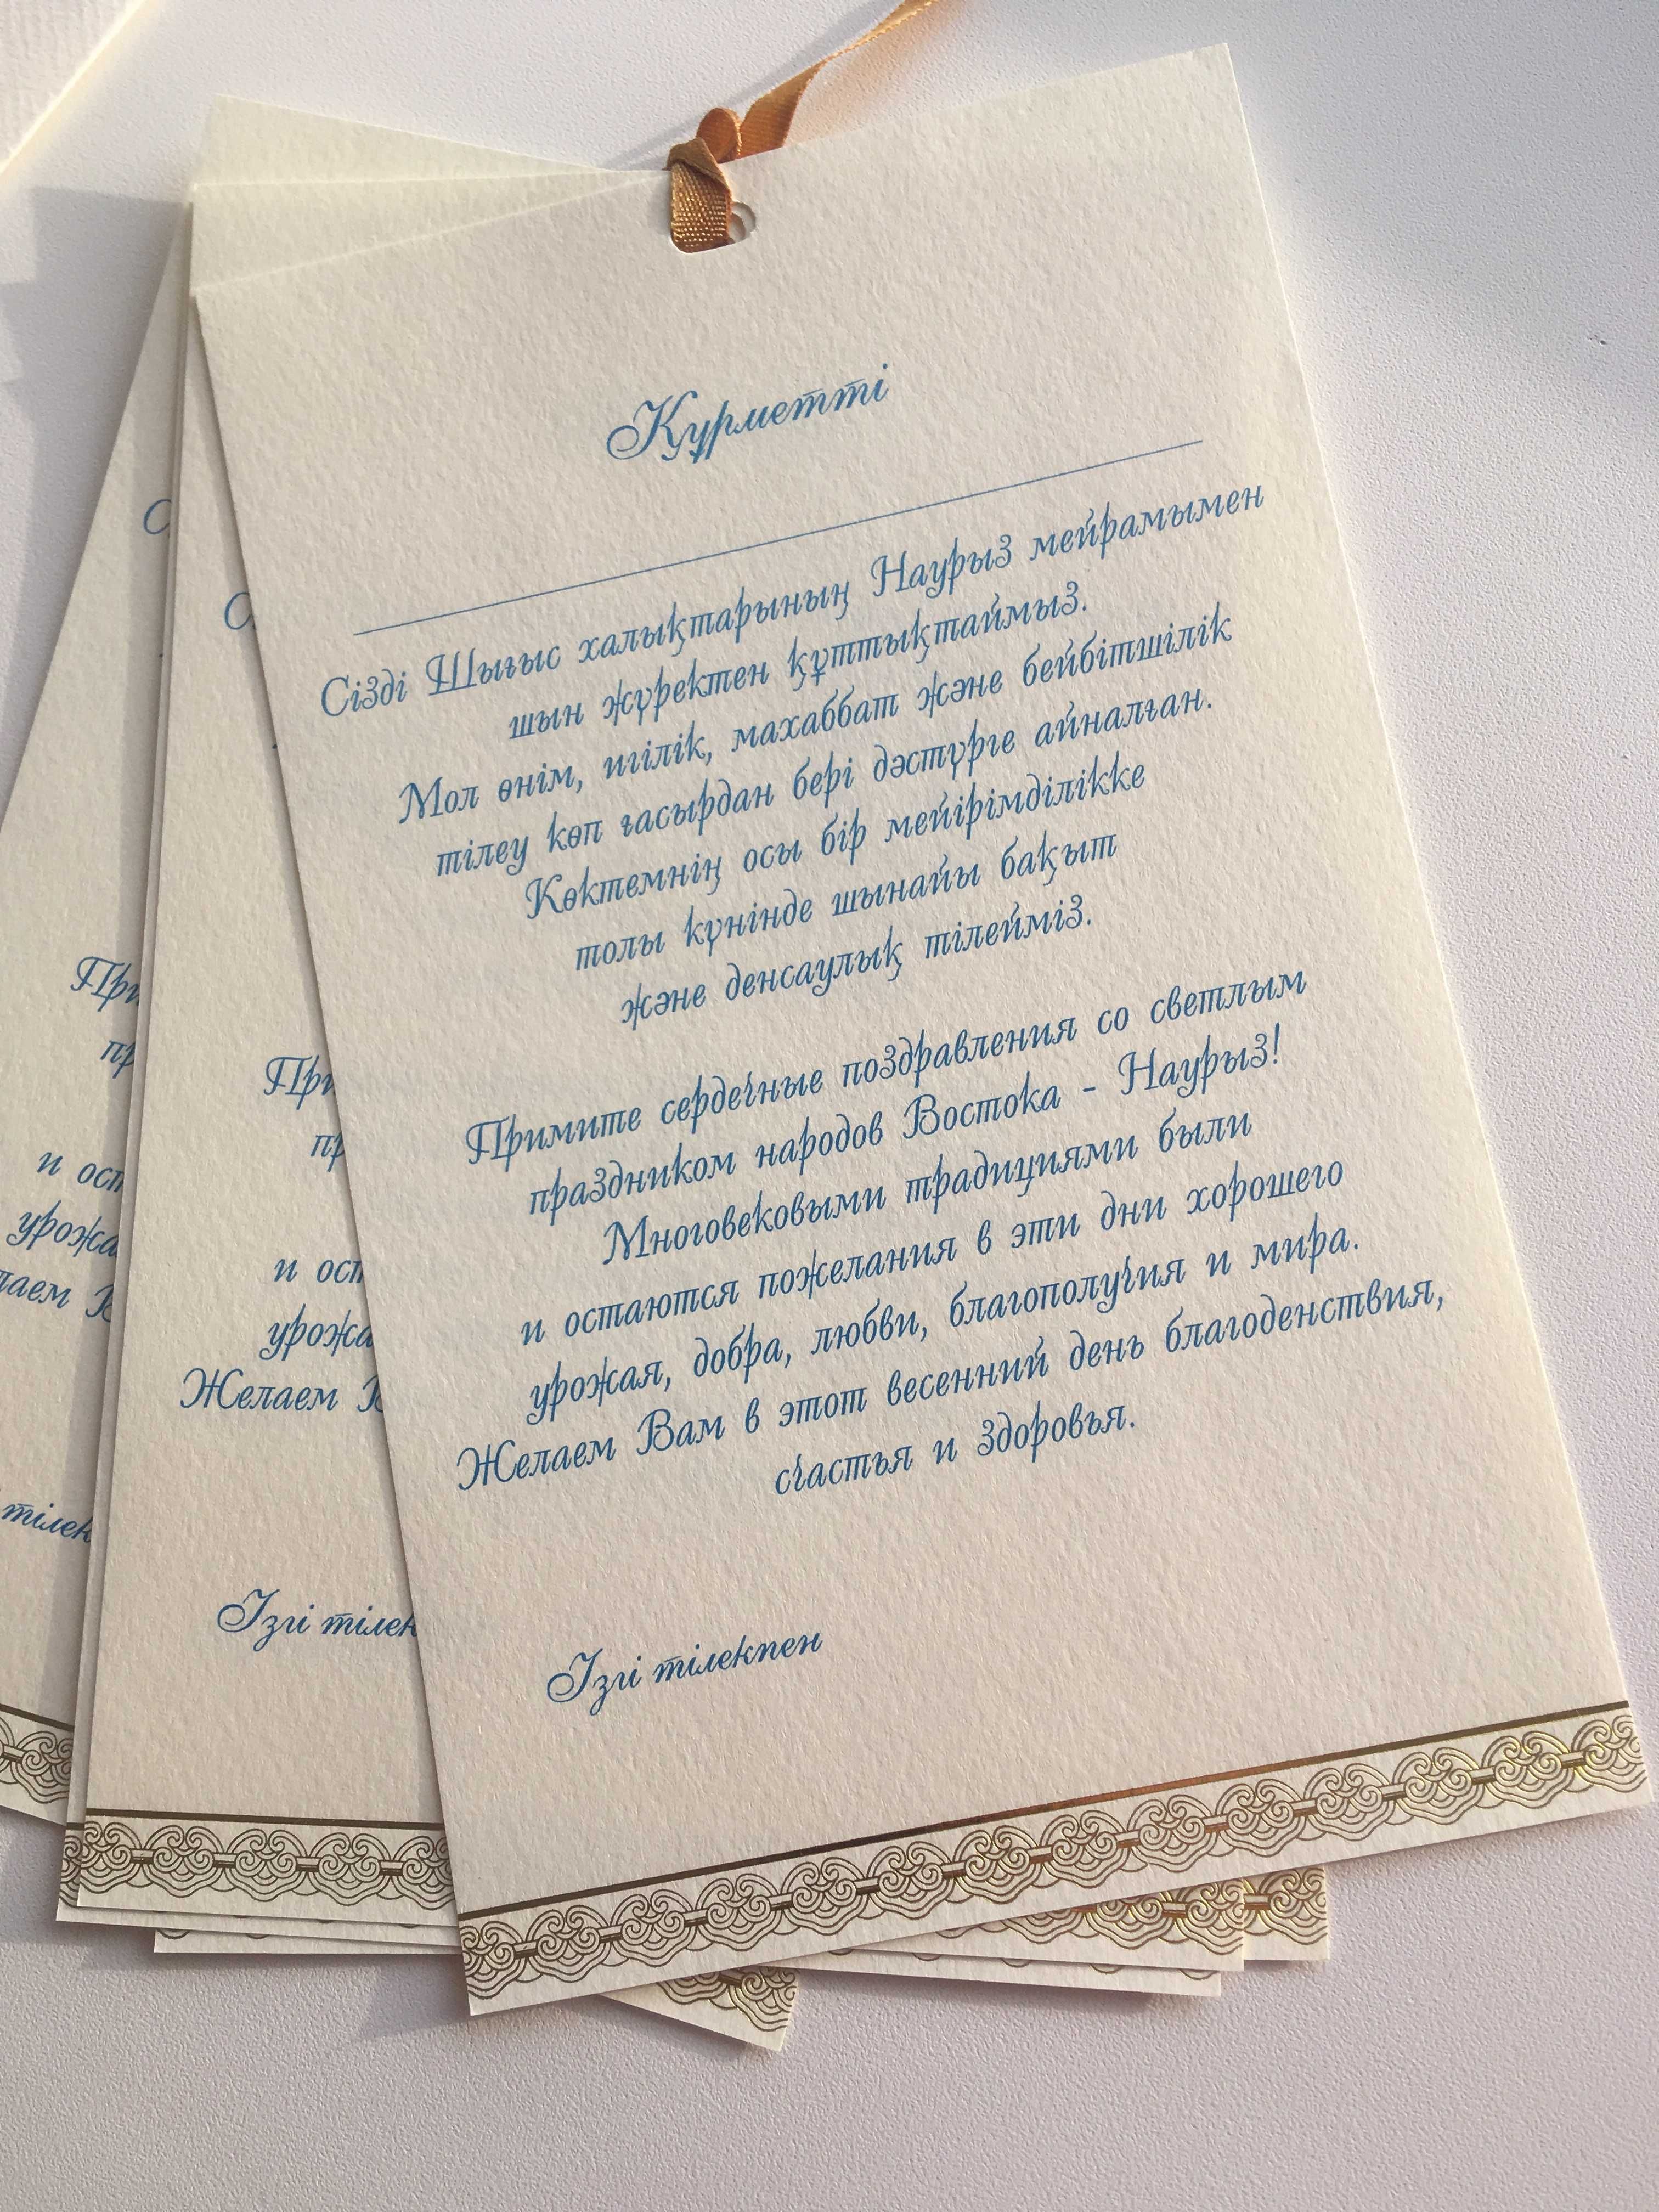 Құрметті
Сізді Шығыс халықтарының Наурыз мейрамымен
шын жүректен құттықтаймыз.
Мол өнім, игілік, махаббат және бейбітшілік
тілеу көп ғасырдан бері дәстүрге айналған.
Көктемнің осы бір мейірімділікке
толы күнінде шынайы бақыт
және денсаулық тілейміз.
Примите сердечные поздравления со светлым
праздником народов Востока - Наурыз!
Многовековыми традициями были
и остаются пожелания в эти дни хорошего
урожая, добра, любви, благополучия и мира.
Желаем Вам в этот весенний день благоденствия,
счастья и здоровья.
Ізгі тілекпен
С
При
пр
и ост
урожа
Желаем В
Ізгі тілек
С
При
пр
и ост
урожа
лаем В
тілек